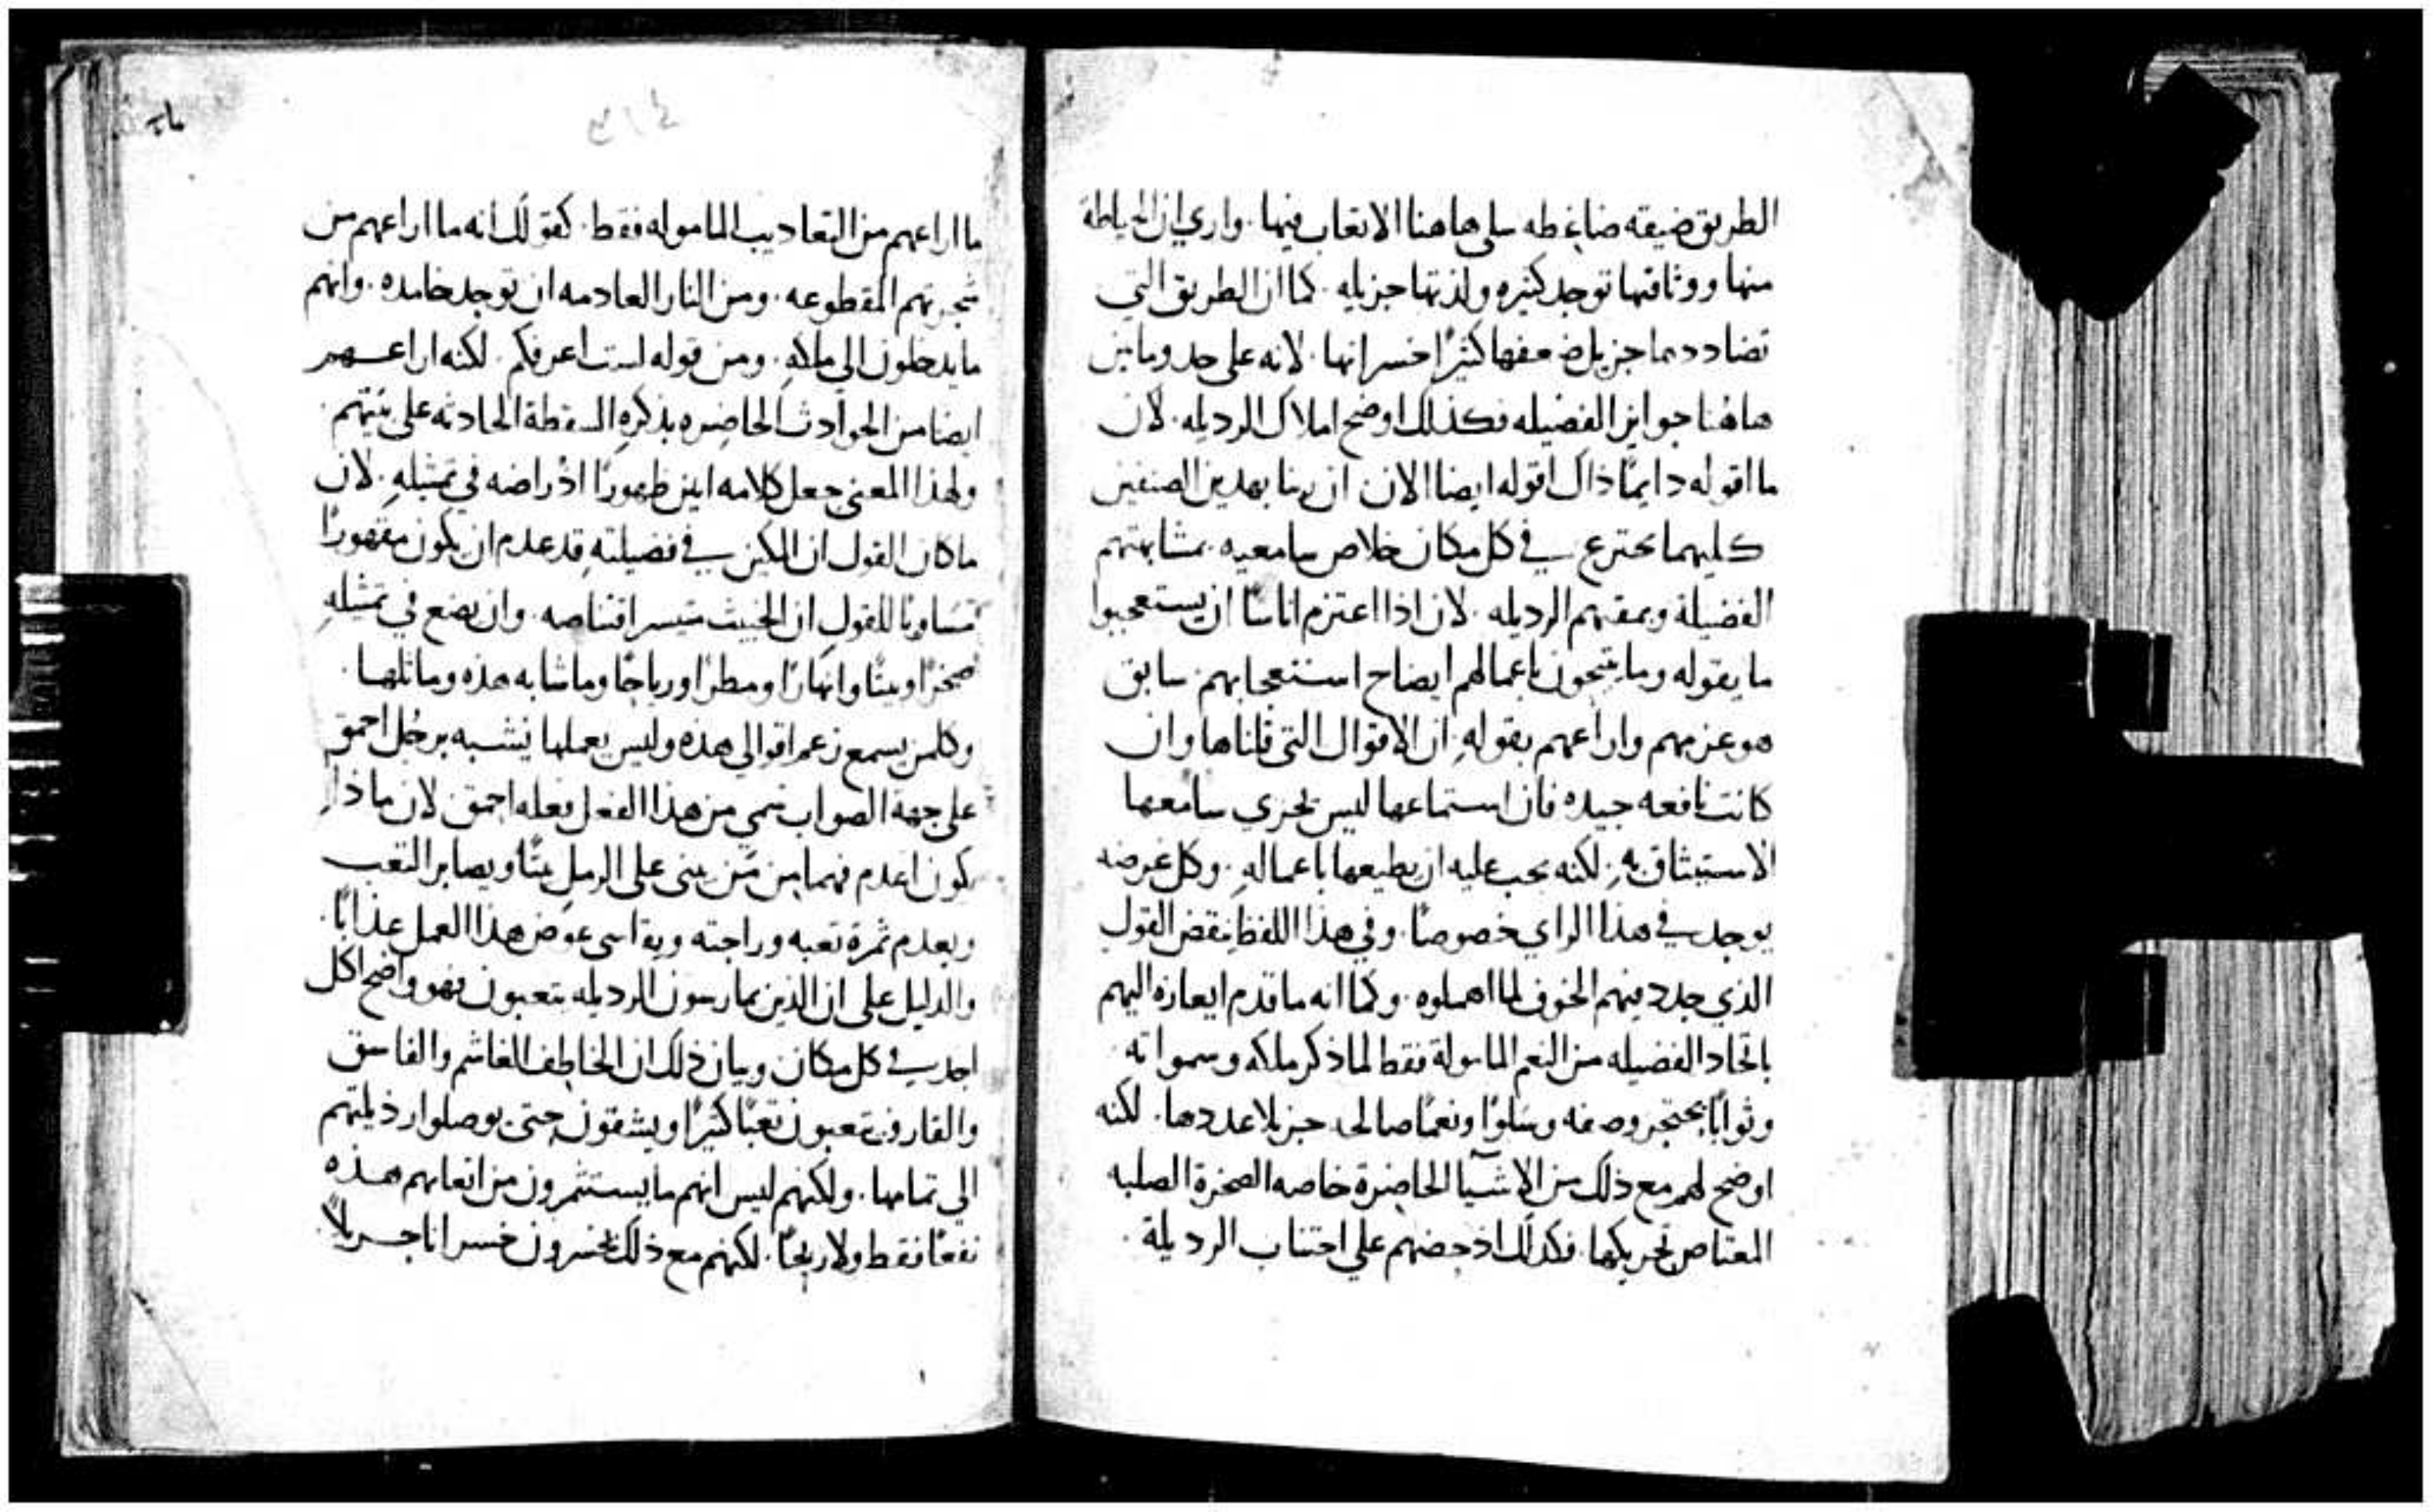 الطريق ضيقه ضاغطه سلي هاهنا الاتعاب فيها. واري ان الحياطة
منها ووثاقتها توجد كثيره ولذتها جزيله. كما ان الطريق التي
تضاددهما جزيل ضعفها كثيرًا خسرانها. لانه على حد وما بين
هاهنا جوايز الفضيله فكذلك اوضح املاك الرديله. لان
ما اقوله دايمًا ذاك اقوله ايضا الان ان ربنا بهدين الصنفين
كليهما يخترع في كل مكان خلاص سامعيه. بمشابهتهم
الفضيلة وبمقتهم الرديله. لان اذا اعتزم اناسًا ان يستعجبوا
ما يقوله وما ينتجون باعمالهم ايضاح استعجابهم. سابق
هو عزمهم واراعهم بقولهِ. ان الاقوال التي قلناها وان
كانت نافعه جيده فان استماعها ليس يجزي سامعها
الاستيثاق بهِ. لكنه يجب عليه ان يطيعها باعمالهِ. وكل غرضه
يوجد في هذا الراي خصوصًا. وفي هذا اللفظ نقض القول
الذي جدد فيهم الخوف لما اهملوه. وكما انه ما قدم ايعازه اليهم
باتحاد الفضيله من النعم المامولة فقط لما ذكر ملكه وسمواته
وثوابًا يحتجز وصفه وسلوًا ونعمًا صالحه جزيلا عددها. لكنه
اوضح لهم مع ذلك من الاشيآ الحاضرة خاصه الصخرة الصلبه
المعتاص تحريكها. فكذلك اذ حضهم على اجتناب الرديلة.
٤١٤
ما اراعهم من التعاديب المامولة فقط. كقولك انه ما اراعهم من
شجرتهم المقطوعه. ومن النار العادمه ان توجد خامده. وانهم
ما يدخلون الي ملكهِ. ومن قوله لست اعرفكم. لكنه اراعهم
ايضا من الحوادث الحاضره بذكرهِ السقطة الحادثه على بيتهم.
ولهذا المعنى جعل كلامه ابين ظهورًا اذ راضه في تمثيلهِ. لان
ما كان القول ان المكين في فضيلتهِ قد عدم ان يكون مقهورًا
مساويًا للقول ان الخبيث متيسر اقتناصه. وان يضع في تمثيلهِ
صخرًا وبيتًا وانهارًا ومطرًا ورياحًا وما شابه هذه وماثلها.
وكلمن يسمع زعم اقوالي هذه وليس يعملها يشبه برجل احمق
على جهة الصواب سمي من هذا الفعل بفعله احمق لان ماذا
يكون اعدم فهما من من يبني على الرملِ بيتًا ويصابر التعب
ويعدم ثمرة تعبه وراحته ويقاسي عوض هذا العمل عذابًا.
والدليل على ان الذين يمارسون الرديله يتعبون فهو واضح لكل
احد في كل مكان وبيان ذلك ان الخاطف الغاشم والفاسق
والقارف يتعبون تعبًا كثيرًا ويشقون حتى يوصلوا رذيلتهم
الي تمامها. ولكنهم ليس انهم ما يستثمرون من اتعابهم هذه
نفعًا فقط ولا ربحًا. لكنهم مع ذلك يخسرون خسرانا جزيلاً.